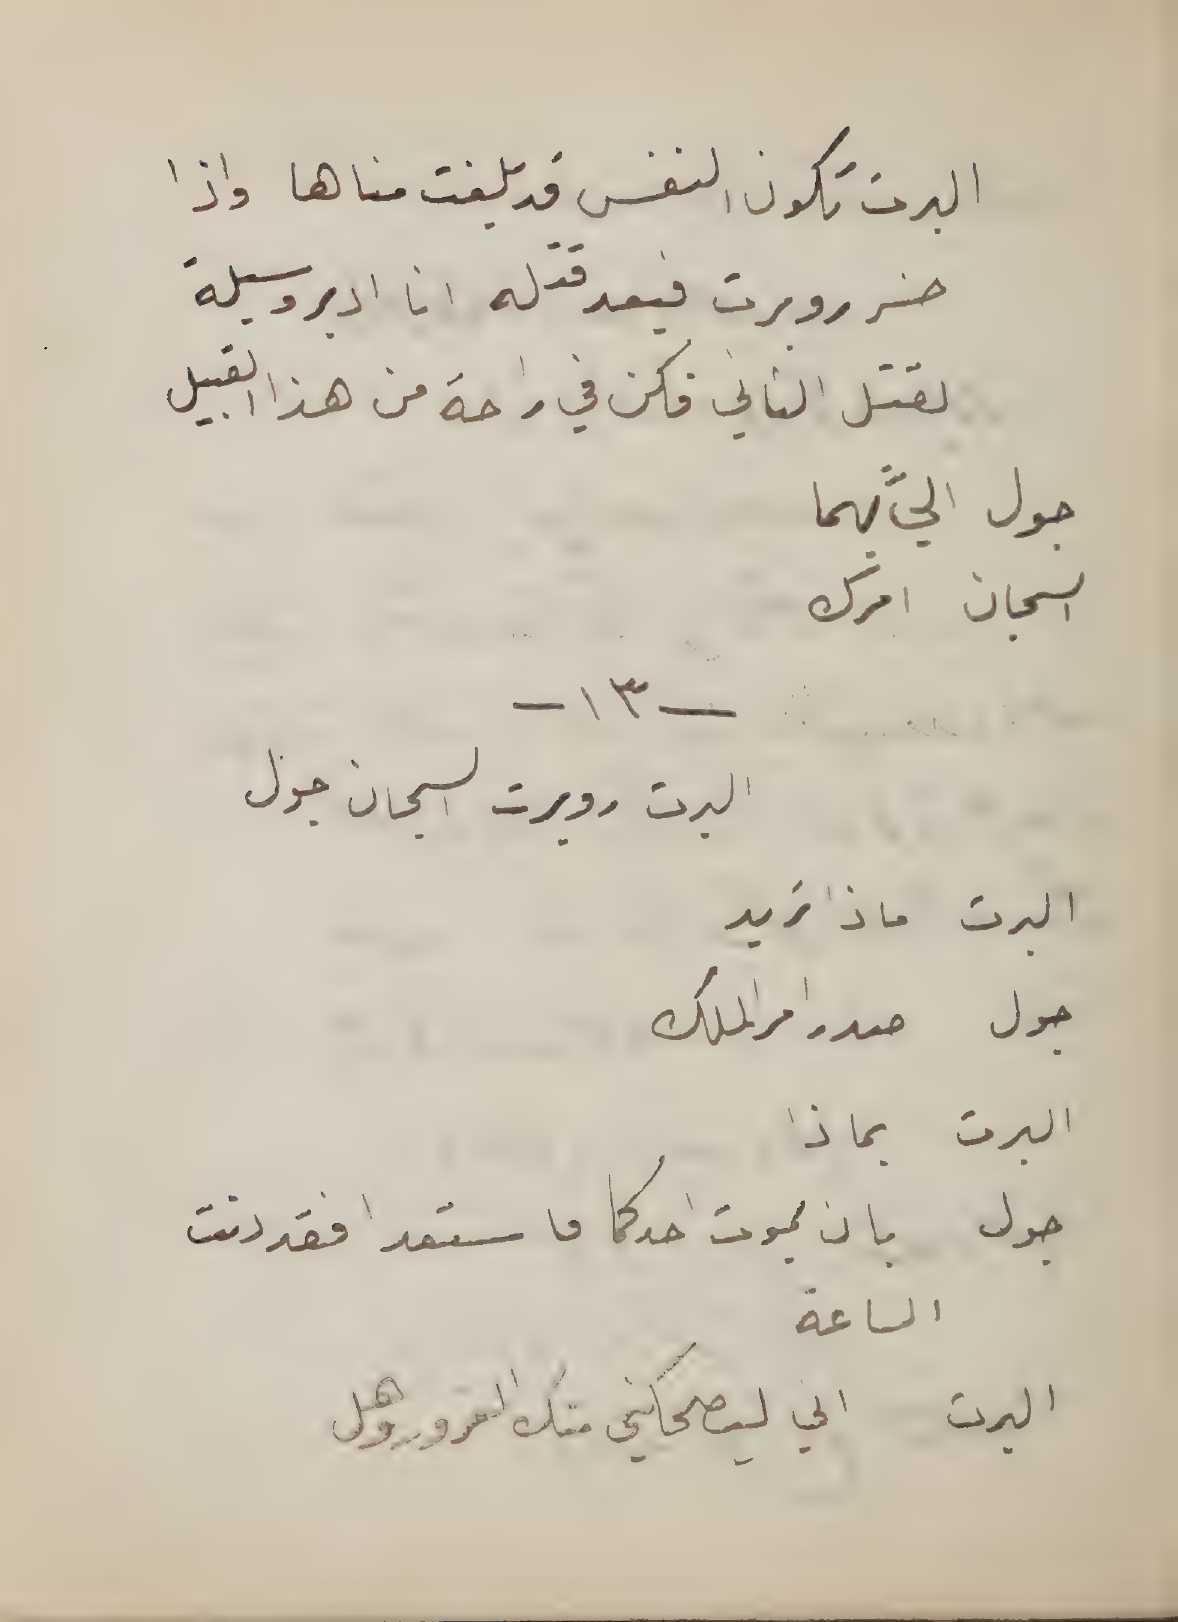 البرت تكون النفس قد بلغت مناها واذا
خسر روبرت فبعد قتله انا ادبر وسيلة
لقتل الثاني فكن في راحة من هذا القبيل
جول اليَّ بهما
السجان امرك
— ١٣ —
البرت روبرت السجان جول
البرت ماذا تريد
جول صدر امر الملك
البرت بماذا
جول بان يموت احدكما فاستعدا فقد دنت
الساعة
البرت اني ليضحكني منك الغرور وهل